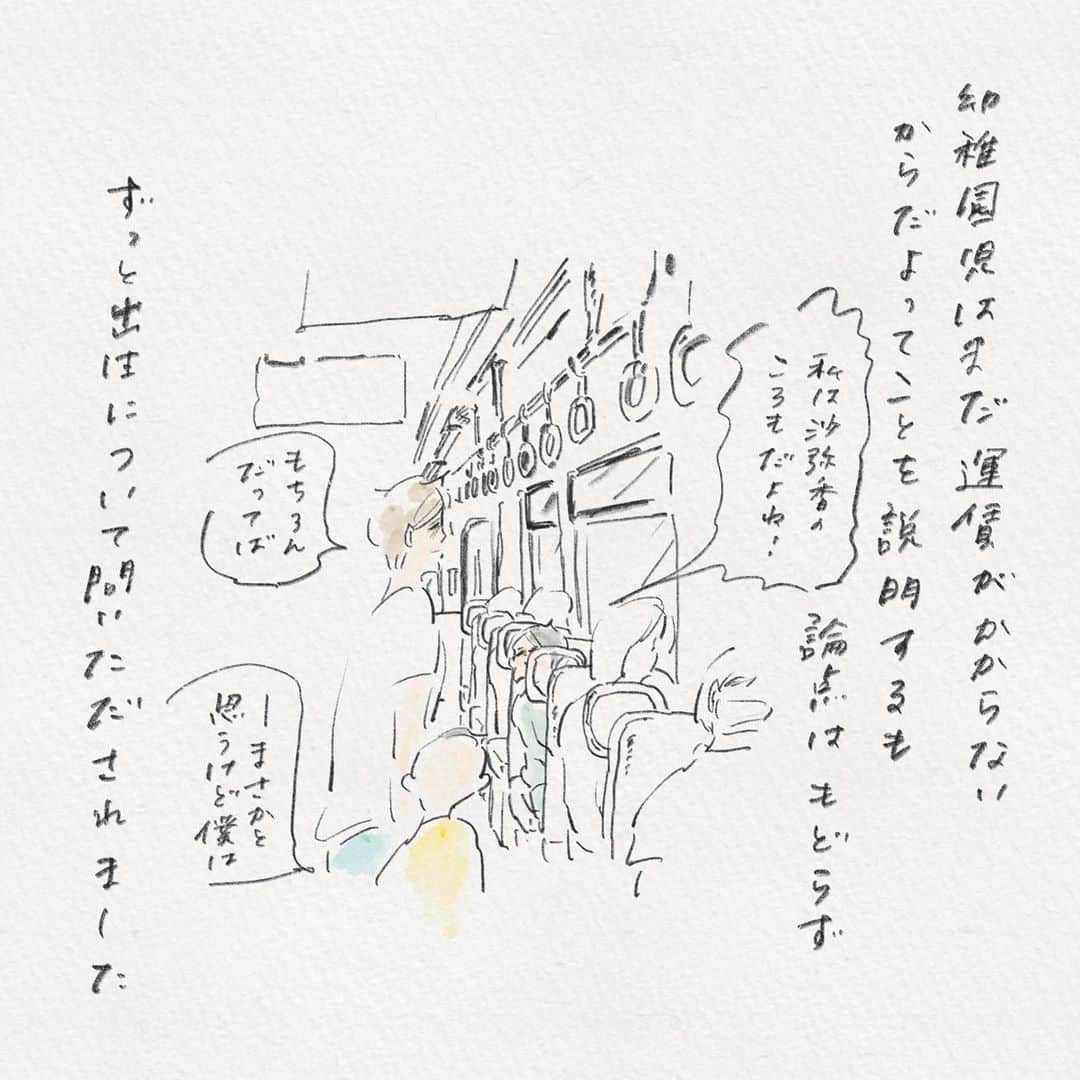 幼稚園児はまだ運賃がかからない
からだよってことを説明するも
私は沙弥香の
ころもだよね!
論点はもどらず
もちろん
だってば
まさかと
思うけど僕は
ずっと出自について問いただされました